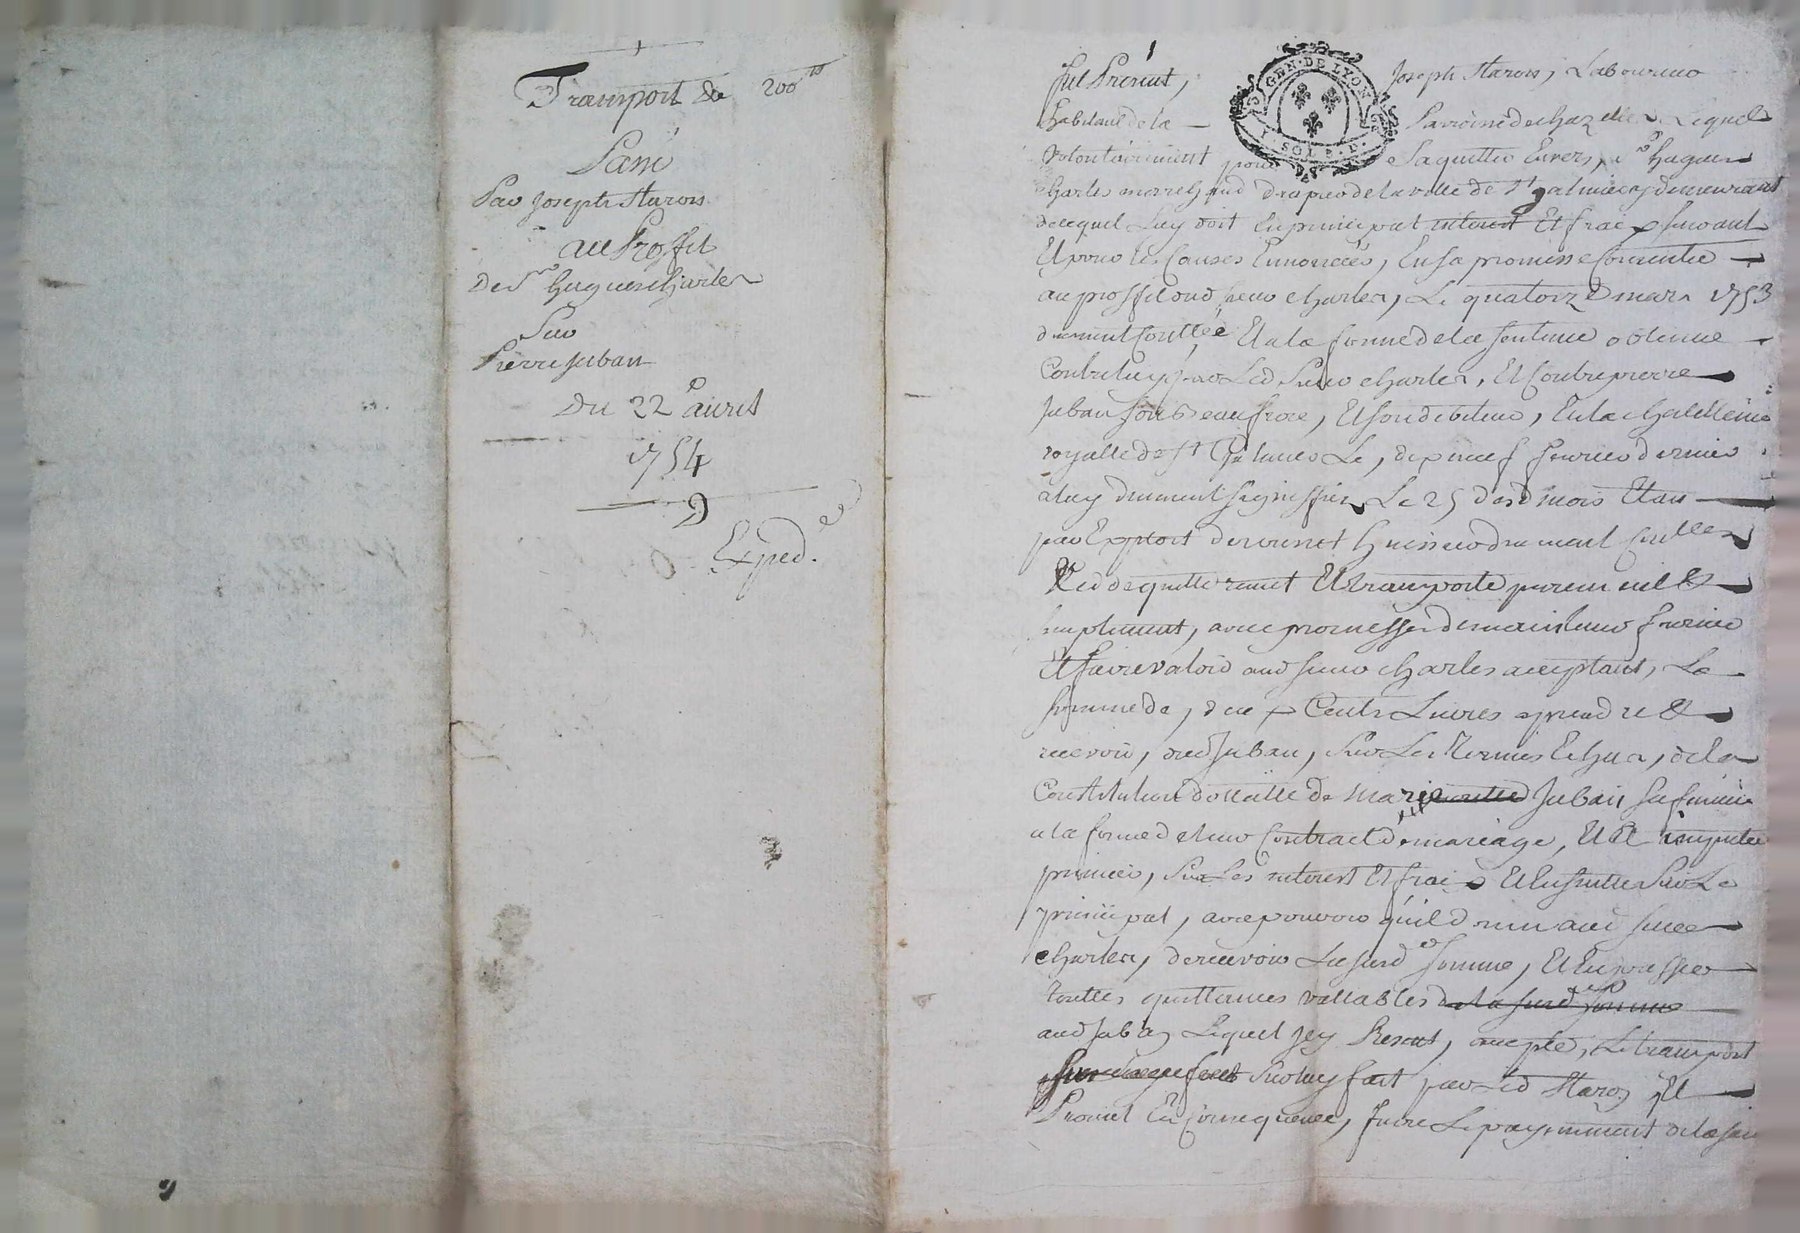 Transport de 200 lt
Passé
Par Joseph Starons
au Proffit
De Sr hugues Charles
Sur
Pierre Juban
Du 22e avril
1754
Exped.
fut Present, Joseph Staron, Laboureur
habitant de la Parroisse de chazelles Lequel
volontairement pour Saquitter Envers, Sr hugues
Charles marchand drapier de la ville de St galmier y demeurant
de ce quil Luy doit En principal interest Et frais suivant
Et pour les Causes Enoncées, En sa promesse Consentie
au proffit dud sieur Charles, Le quatorze mars 1753
duement conttlée Et a la forme de la sentence obtenue
Contre luy par Led Sieur Charles, Et Contre pierre
Juban son Beau frere, Et son debiteur, En la chatellenie
royalle de St Galmier Le, dix neuf fevrier dernier
a luy duement signiffiée Le 25 desd mois Et an
par Exploit de huissier duement Conttlée
Led de quitte remet Et transporte purement Et
simplement, avec promesse de maintenir fournir
Et faire valoir aud sieur Charles acceptant, La
somme de, deux Cents Livres a prendre Et
recevoir, dud Juban, Sur Les Termes Echus, de la
Constitution dottalle de Marie Juban sa femme
a la forme de leur Contract de mariage, Et a imputer
premier, Sur Les interest Et frais Et Ensuitte Sur Le
principal, avec pouvoir quil donne aud sieur
Charles, de recevoir Lasusd somme, Et En passer
touttes quittances vallables de la susd somme
aud Juban Lequel Icy Present, accepte, Le transport
sur luy fait par Led Staron, Et
Promet En Consequence, faire Le payement de la
GEN. DE LYON
SOL